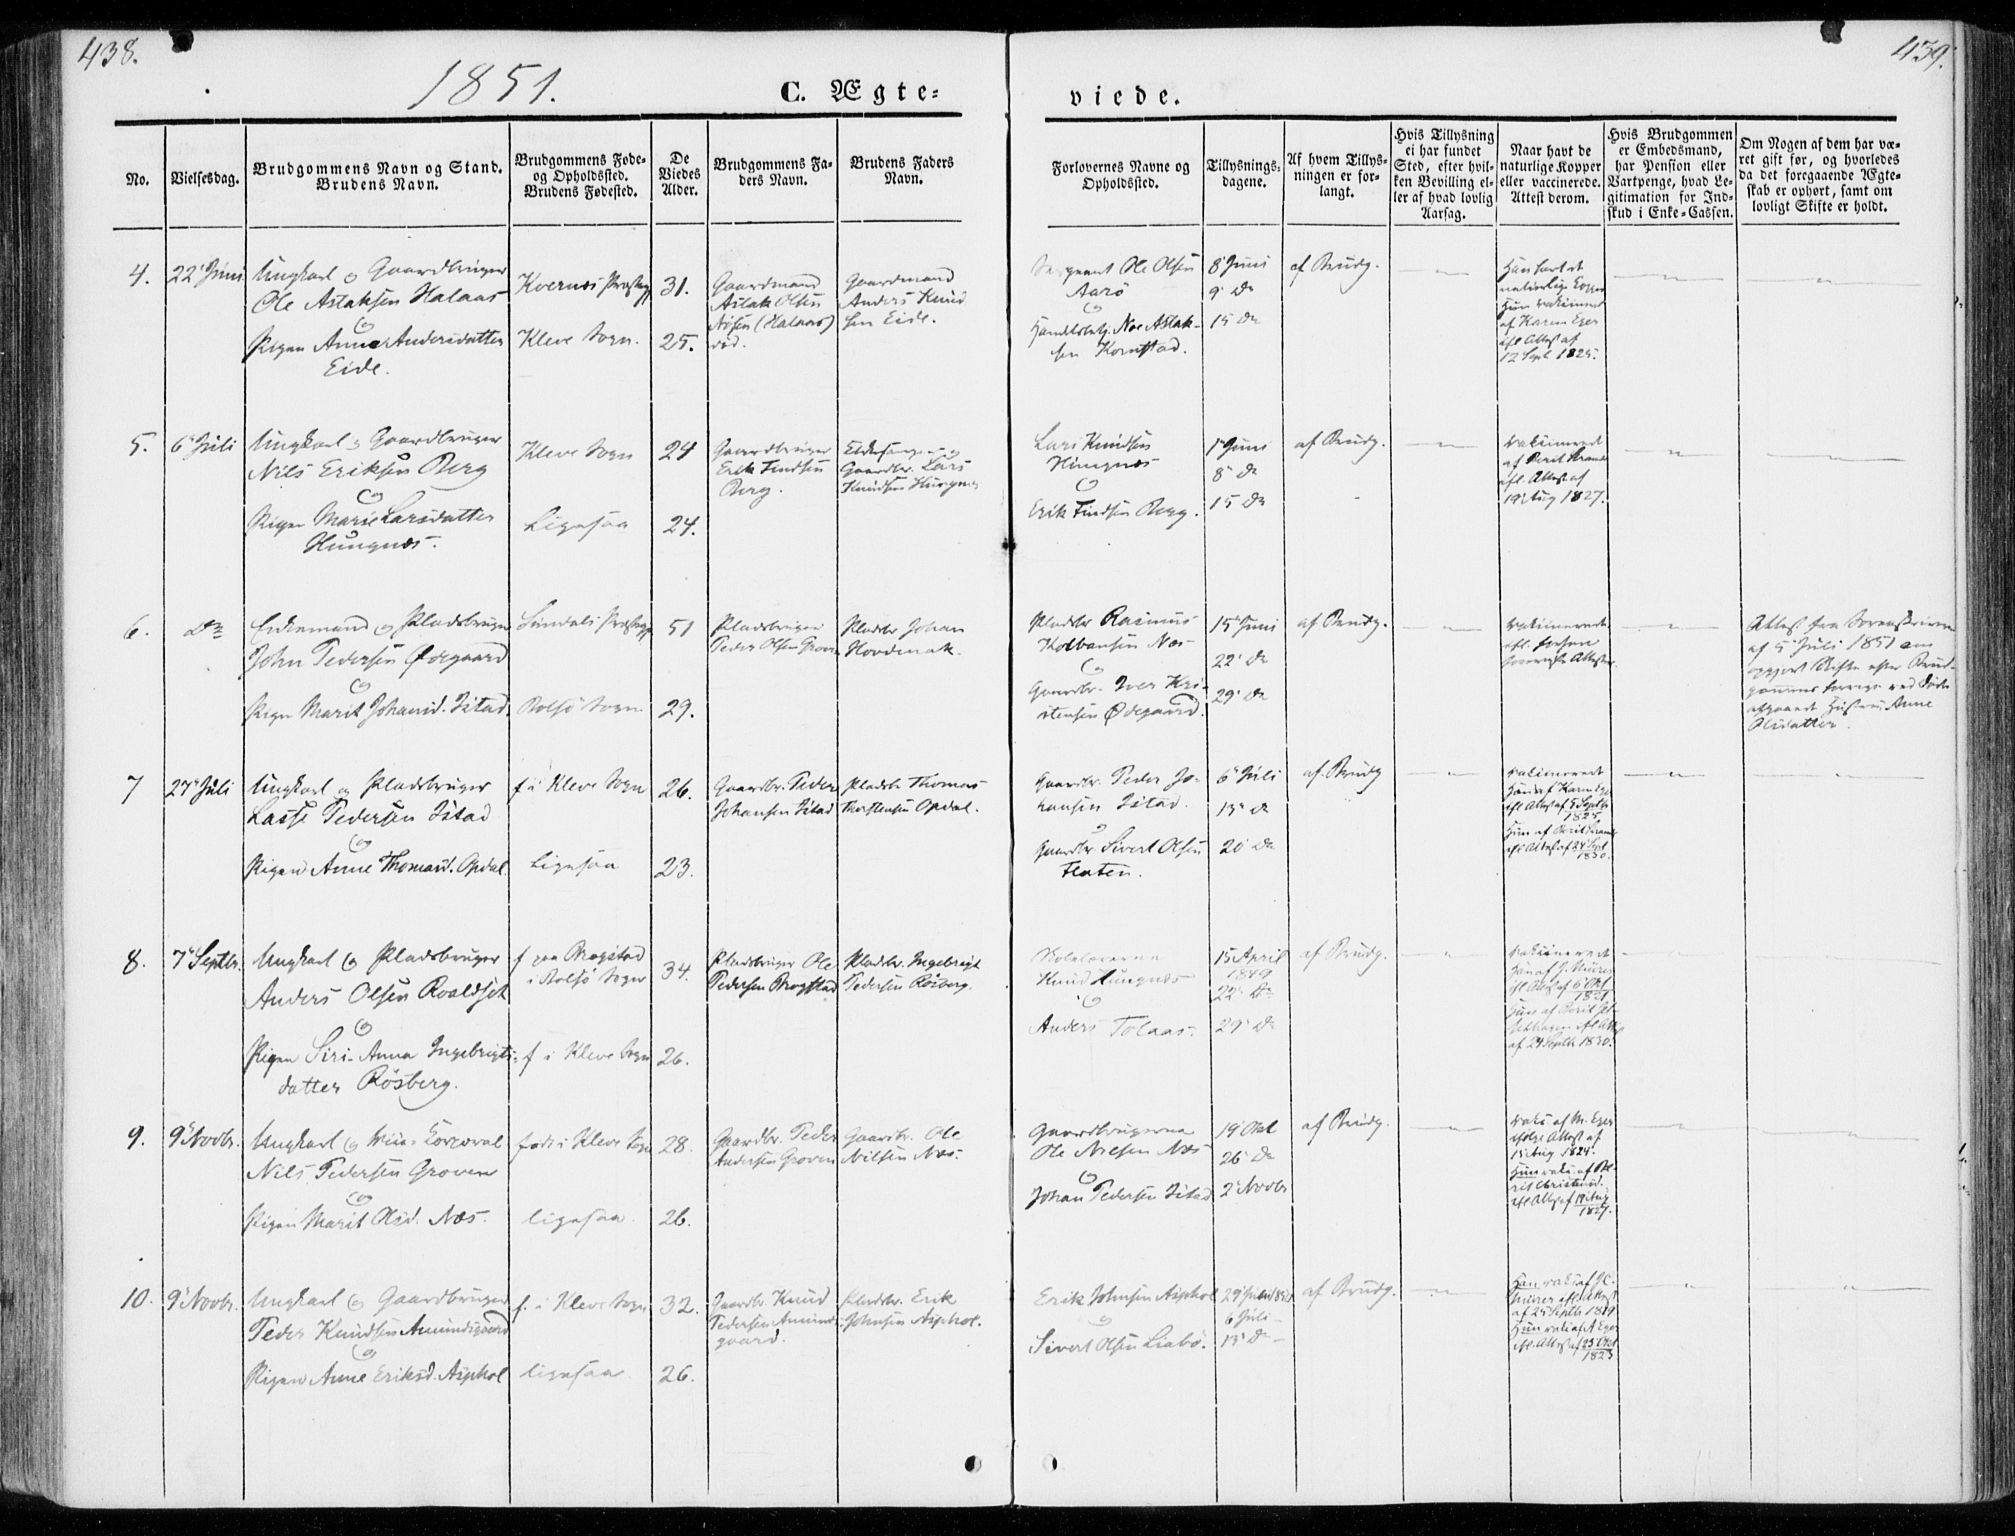 438.
439.
1851.
C. Ægte=
viede.
No.
Vielsesdag.
Brudgommens Navn og Stand.
Brudens Navn.
Brudgommens Føde=
og Opholdssted.
Brudens Fødested.
De
Viedes
Alder.
Brudgommens Fa=
ders Navn.
Brudens Faders
Navn.
Forlovernes Navne og
Opholdssted.
Tillysnings=
dagene.
Af hvem Tillys=
ningen er for=
langt.
Hvis Tillysning
ei har fundet
Sted, efter hvil=
ken Bevilling el=
ler af hvad lovlig
Aarsag.
Naar havt de
naturlige Kopper
eller vaccinerede.
Attest derom.
Hvis Brudgommen
er Embedsmand,
har Pension eller
Vartpenge, hvad Le=
gitimation for Ind=
skud i Enke=Cassen.
Om Nogen af dem har væ=
ret gift før, og hvorledes
da det foregaaende Ægte=
skab er ophørt, samt om
lovligt Skifte er holdt.
4.
22' Juni
Ungkarl og Gaardbruger
Ole Aslaksen Halaas
og
Pigen Anne Andersdatter
Eide.
Kvernes Præstegj
Kleve Sogn.
31.
25.
Gaardmand
Aslak Olsen
(Halaas)
Gaardmand
Anders Knud
sen Eide.
Sergeant Ole Olsen
Aarø
og
Aslak-
sen Kornstad.
8' Juni
9' Do
15 Do
af Brudg.
Han havt de
naturlige Kopper
Hun vakcineret
af Karen Eger
efl. Attest af
12 Sept 1825.
5.
6' Juli
Ungkarl og Gaardbruger
Nils Eriksen Berg
og
Pigen Marie Larsdatter
Hungnæs.
Kleve Sogn
Ligesaa
24
24.
Gaardbruger
Erik Findsen
Berg.
Gaardbr. Lars
Knudsen Hungnæs
Lars Knudsen
Hungnæs
og
Erik Findsen Berg.
1' Juni
8' Do
15 Do
af Brudg.
vakcineret
af Berit
efl. Attest af
19' Aug 1827.
6.
Do
Enkemand og Pladsbruger
John Pedersen Ødegaard
og
Pigen Marit Johansd. Istad.
Sundals Præstegj
Bolsø Sogn
51
29.
Pladsbruger
Peder Olsen Groven
Pladsbr Johan
Hovdenak.
Pladsbr Rasmus
Kolbansen Næs
og
Gaardbr. Iver Kri-
stensen Ødegaard.
15' Juni
22' Do
29' Do
af Brudg.
Attest fra Sorenskriveren
af 5 Juli 1851 om
opgjort Skifte efter Brud-
gommens forrige ved Døden
afgaaede Hustru, Anne
Olsdatter.
7
27' Juli
Ungkarl og Pladsbruger
Lasse Pedersen Istad
og
Pigen Anne Thomasd. Opdal.
f. i Kleve Sogn
Ligesaa
26.
23.
Gaardbr. Peder
Johansen Istad
Pladsbr Thomas
Thorstensen Opdal.
Gaardbr. Peder Jo-
hansen Istad.
og
Gaardbr. Sivert Olsen
Flaten.
6' Juli
13' Do
20' Do
af Brudg
vakcineret
Han af Karen Eger
efl. Attest af 5 Septbr
1825.
efl. Attest af 24 Sept
1830.
8.
7' Septbr.
Ungkarl og Pladsbruger
Anders Olsen Roaldset
og
Pigen Siri-Anna Ingebrigts-
datter Røsberg.
f. paa Brogstad
i Bolsø Sogn
f. i Kleve Sogn
34.
26.
Pladsbruger Ole
Pedersen Brogstad
Pladsbr. Ingebrigt
Pedersen Røsberg.
Skolelærerne
Knud Hungnæs
og
Anders Tolaas.
15 April
1849
22' Do
29' Do
af Brudg.
vakcineret
efl. Attest af 6' Okt
1821
af 24 Septbr 1830.
9.
9' Novbr.
Ungkarl og Vice-Korporal
Nils Pedersen Groven
og
Pigen Marit Olsd. Næs.
født i Kleve Sogn
ligesaa.
28.
26.
Gaardbr. Peder
Andersen Groven
Gaardbr. Ole
Nilsen Næs.
Gaardbrugerne
Ole Nielsen Næs
og
Johan Pedersen Istad
19' Okt
26' Do
2' Novbr
af Brudg.
vaks. af M. Eger
ifølge Attest af
15' Aug 1824.
Hun vaks. af Be-
rit Christensd.
efl. Attest af 19' Aug
1827.
10.
9' Novbr.
Ungkarl og Gaardbruger
Peder Knudsen Amundsgaard
og
Pigen Anne Eriksd. Asphol
f. i Kleve Sogn
ligesaa.
32.
26.
Gaardbr. Knud
Pedersen Amunds-
gaard.
Pladsbr. Erik
Johnsen Asphol.
Erik Johnsen Asphol
og
Sivert Olsen Liabø.
6 Juli
13' Do
af Brudg.
efl. Attest
af 25 Septbr 1819
Hun vaks. af A Eger
efl. Attest af 25' Okt
1823